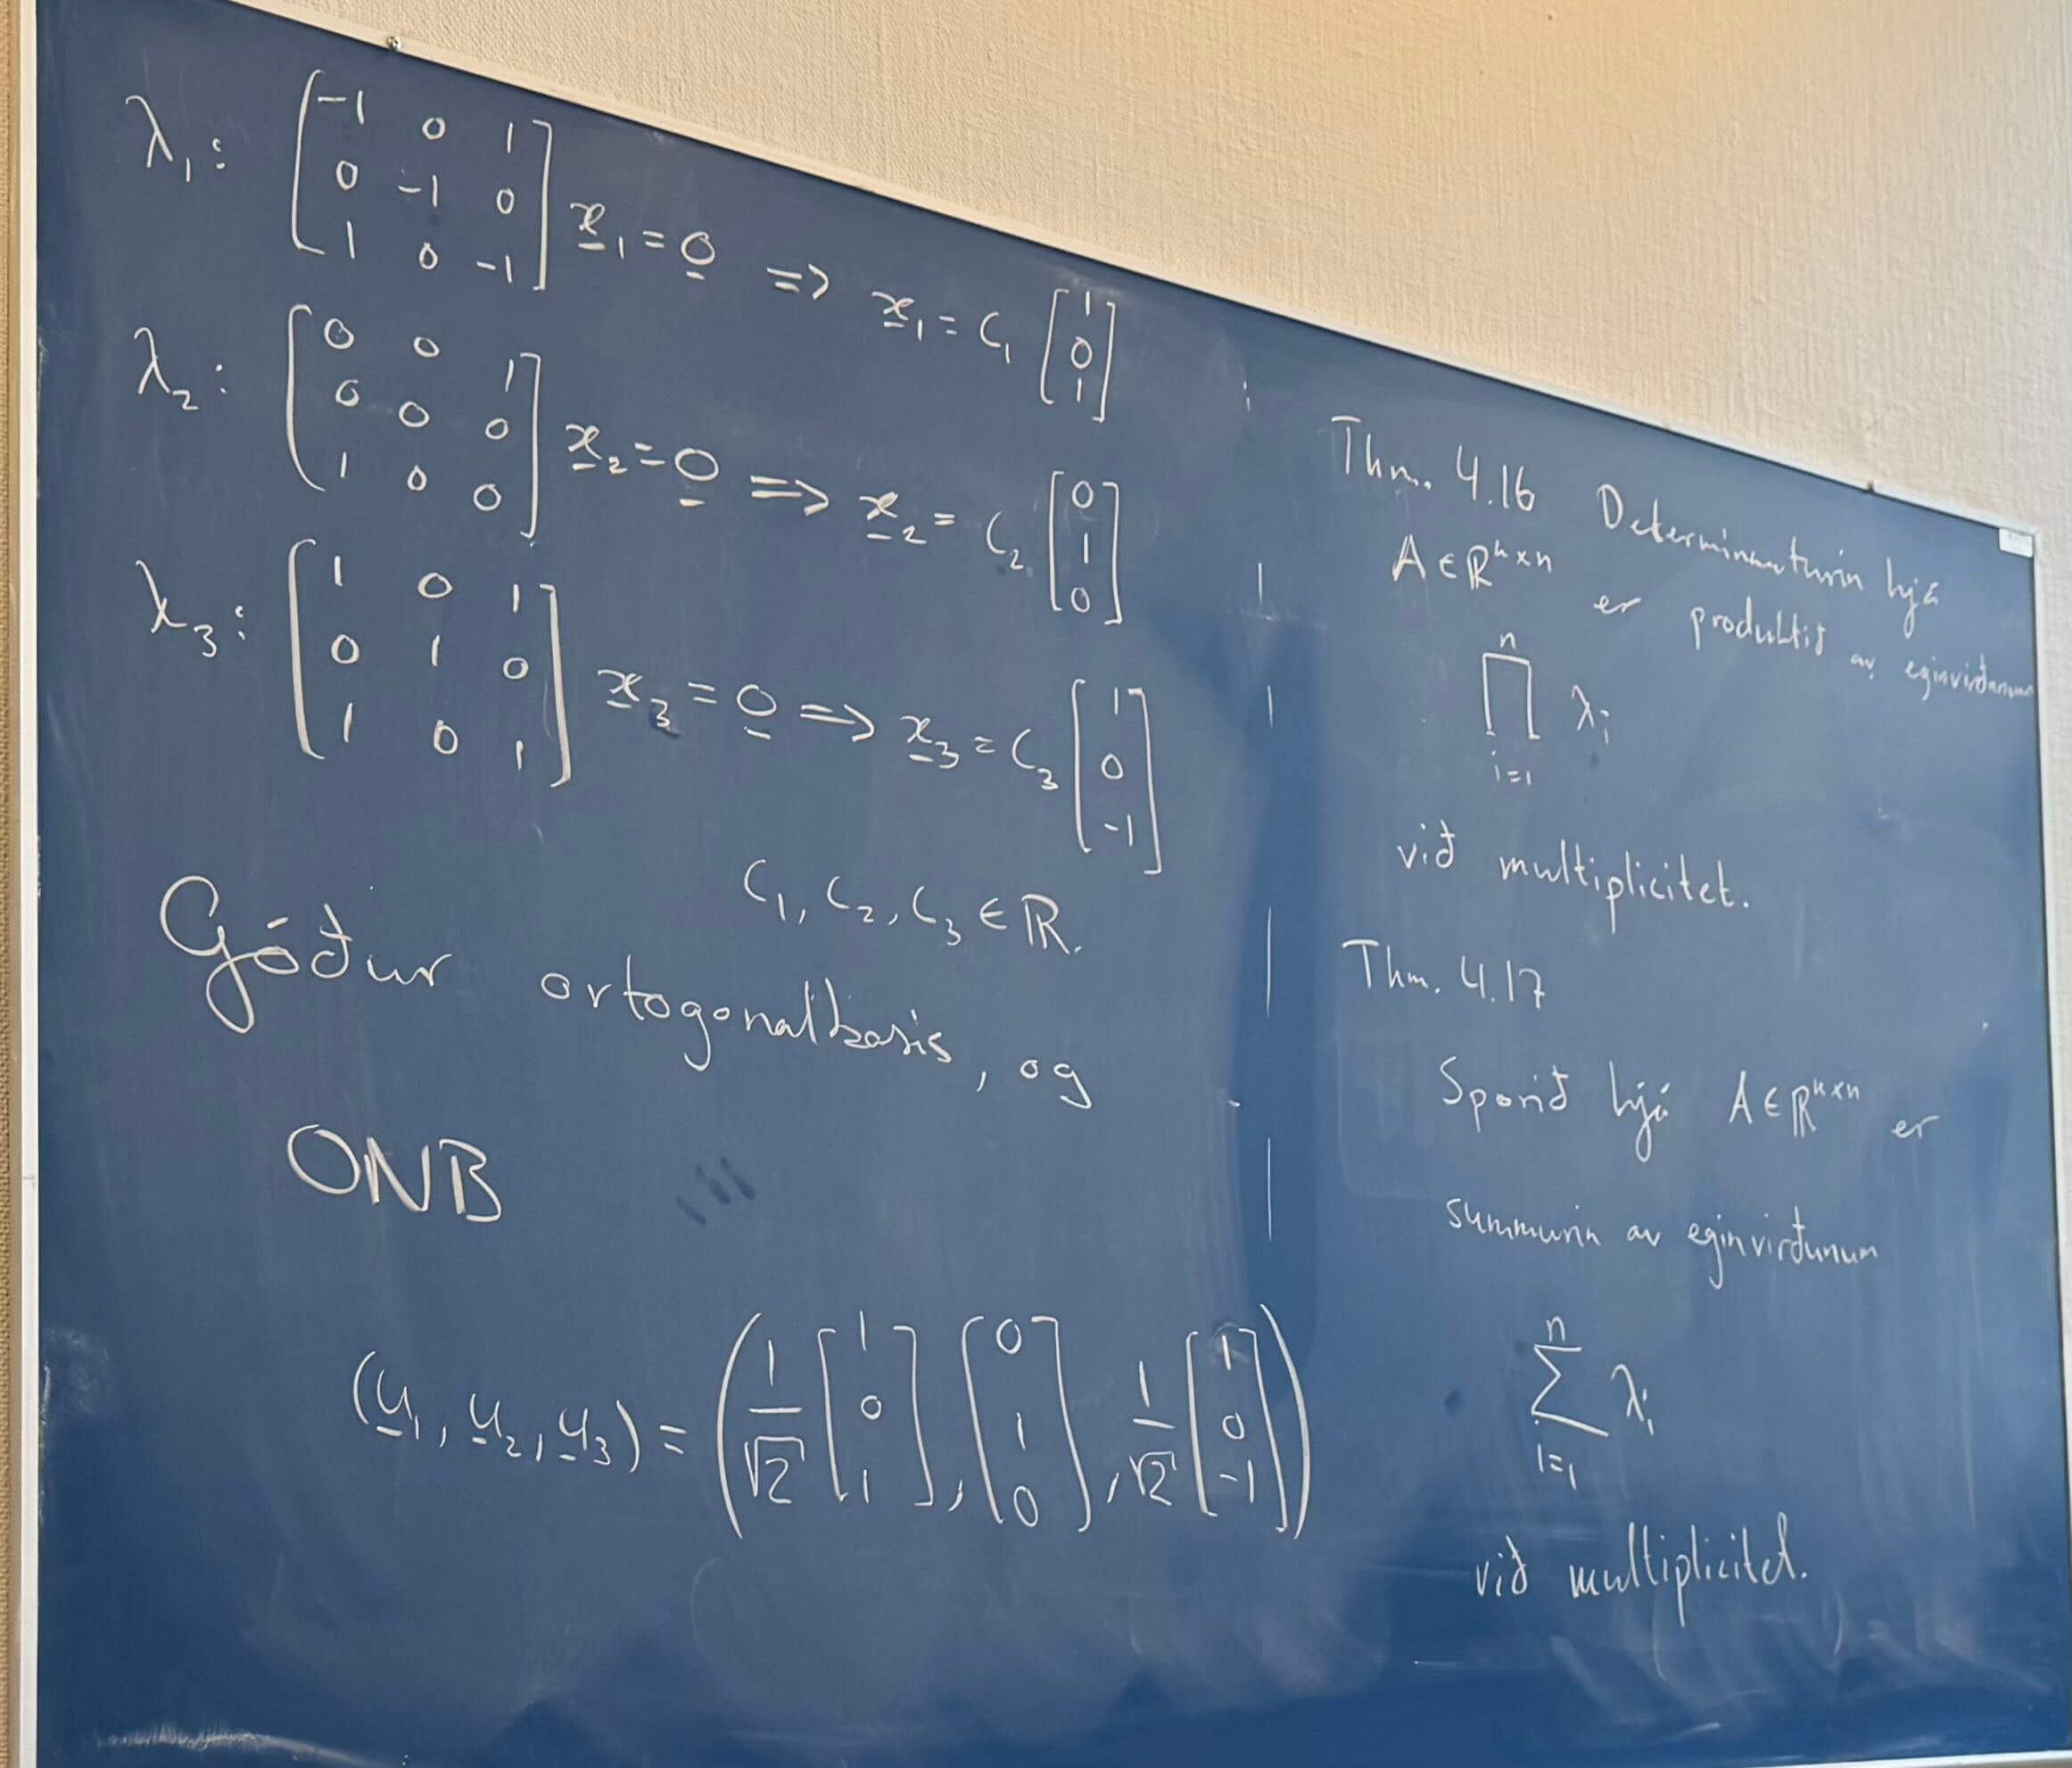 λ₁: [-1 0 1; 0 -1 0; 1 0 -1] x₁ = 0 => x₁ = C₁ [1; 0; 1]
λ₂: [0 0 1; 0 0 0; 1 0 0] x₂ = 0 => x₂ = C₂ [0; 1; 0]
λ₃: [1 0 1; 0 1 0; 1 0 1] x₃ = 0 => x₃ = C₃ [1; 0; -1]
C₁, C₂, C₃ ∈ ℝ.
Góður ortogonalbasis, og
ONB
(u₁, u₂, u₃) = (1/√2 [1; 0; 1], [0; 1; 0], 1/√2 [1; 0; -1])
Thm. 4.16 Determinanturin hjá
A ∈ ℝⁿˣⁿ er produktið av eginvirðunum
∏ᵢ₌₁ⁿ λᵢ
við multiplicitet.
Thm. 4.17
Sporið hjá A ∈ ℝⁿˣⁿ er
summurin av eginvirðunum
∑ᵢ₌₁ⁿ λᵢ
við multiplicitet.